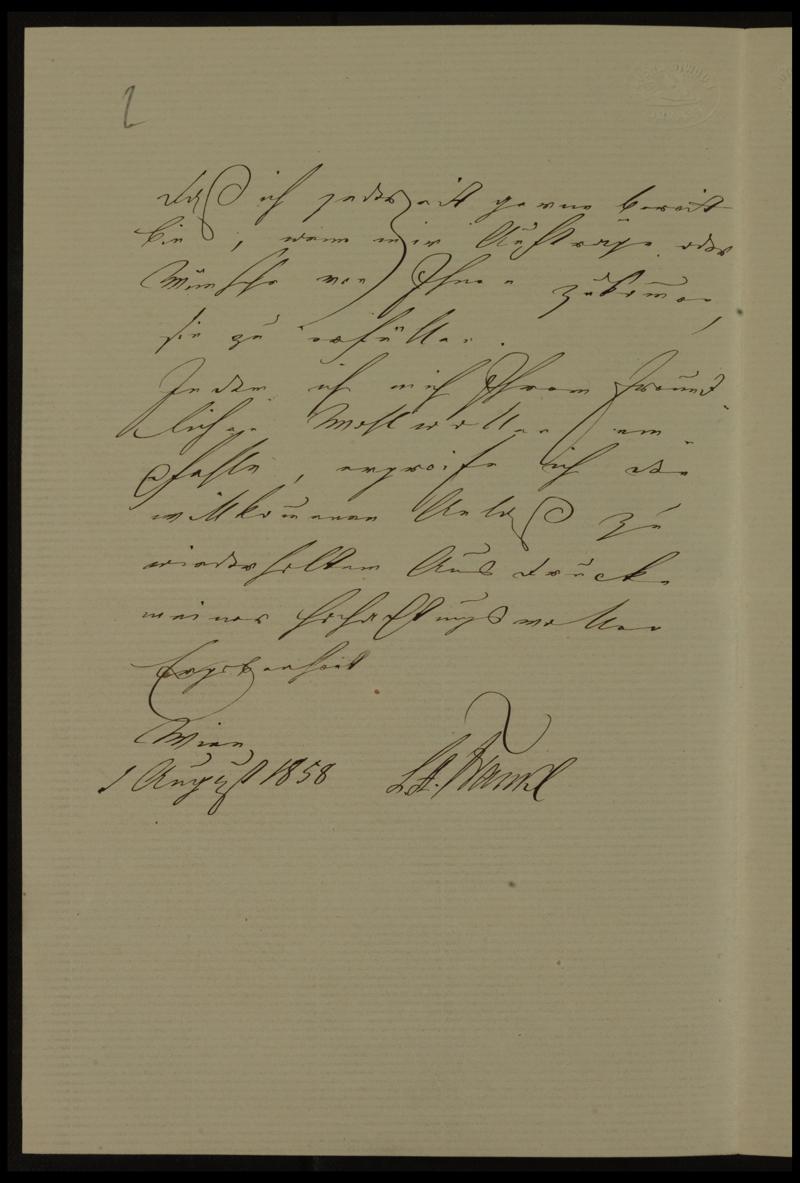 2
daß ich jederzeit gerne bereit
bin, wenn mir Aufträge oder
Wünsche von Ihnen zukom̅en,
sie zu erfüllen.
Indem ich mich Ihrem freund-
lichen Wohlwollen em-
pfehle, ergreife ich den
willkom̅enen Anlaß zu
wiederholtem Ausdrucke
meiner hochachtungsvollen
Ergebenheit
Wien
1 August 1858 L. A. Frankl